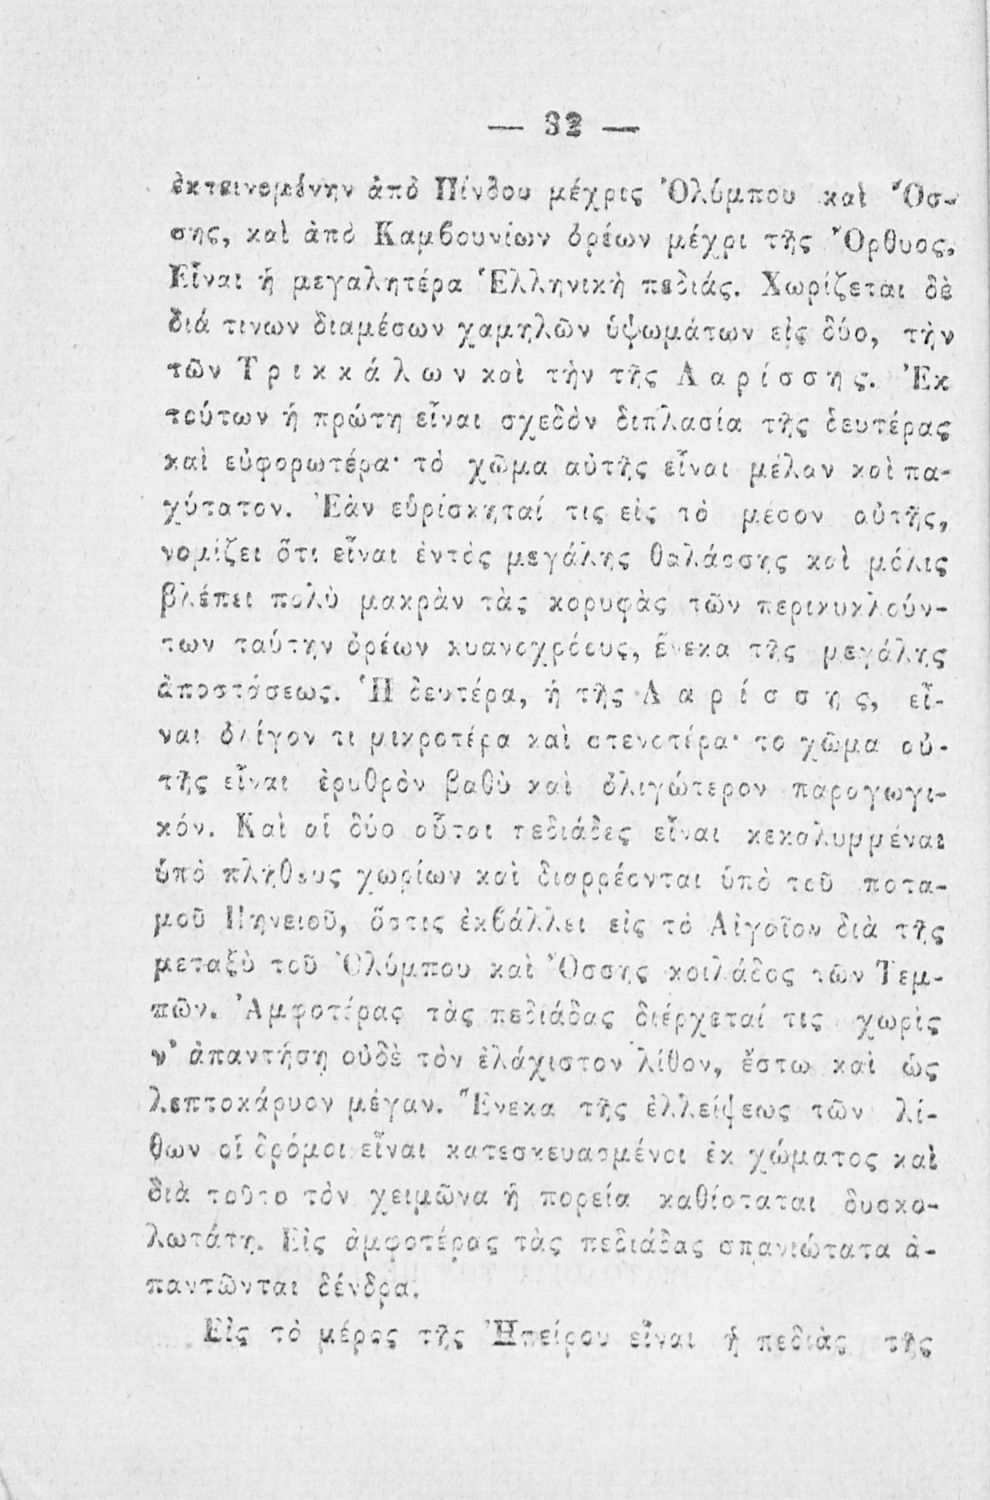 — 32 —
ἐκτεινομένην ἀπὸ Πίνδου μέχρις Ὀλύμπου καὶ Ὄσ-
σης, καὶ ἀπὸ Καμβουνίων ὀρέων μέχρι τῆς Ὄρθυος.
Εἶναι ἡ μεγαλητέρα Ἑλληνικὴ πεδιάς. Χωρίζεται δὲ
διά τινων διαμέσων χαμηλῶν ὑψωμάτων εἰς δύο, τὴν
τῶν Τρικκάλων καὶ τὴν τῆς Λαρίσσης. Ἐκ
τούτων ἡ πρώτη εἶναι σχεδὸν διπλασία τῆς δευτέρας
καὶ εὐφορωτέρα· τὸ χῶμα αὐτῆς εἶναι μέλαν καὶ πα-
χύτατον. Ἐὰν εὑρίσκηταί τις εἰς τὸ μέσον αὐτῆς,
νομίζει ὅτι εἶναι ἐντὸς μεγάλης θαλάσσης καὶ μόλις
βλέπει πολὺ μακρὰν τὰς κορυφὰς τῶν περικυκλούν-
των ταύτην ὀρέων κυανοχρόους, ἕνεκα τῆς μεγάλης
ἀποστάσεως. Ἡ δευτέρα, ἡ τῆς Λαρίσσης, εἶ-
ναι ὀλίγον τι μικροτέρα καὶ στενοτέρα· το χῶμα αὐ-
τῆς εἶναι ἐρυθρὸν βαθὺ καὶ ὀλιγώτερον παραγωγι-
κόν. Καὶ αἱ δύο αὗται πεδιάδες εἶναι κεκαλυμμέναι
ὑπὸ πλήθους χωρίων καὶ διαρρέονται ὑπὸ τοῦ ποτα-
μοῦ Πηνειοῦ, ὅστις ἐκβάλλει εἰς τὸ Αἰγαῖον διὰ τῆς
μεταξὺ τοῦ Ὀλύμπου καὶ Ὄσσης κοιλάδος τῶν Τεμ-
πῶν. Ἀμφοτέρας τὰς πεδιάδας διέρχεταί τις χωρὶς
ν' ἀπαντήσῃ οὐδὲ τὸν ἐλάχιστον λίθον, ἔστω καὶ ὡς
λεπτοκάρυον μέγαν. Ἕνεκα τῆς ἐλλείψεως τῶν λί-
θων οἱ δρόμοι εἶναι κατεσκευασμένοι ἐκ χώματος καὶ
διὰ τοῦτο τὸν χειμῶνα ἡ πορεία καθίσταται δυσκο-
λωτάτη. Εἰς ἀμφοτέρας τὰς πεδιάδας σπανιώτατα ἀ-
παντῶνται δένδρα.
Εἰς τὸ μέρος τῆς Ἠπείρου εἶναι ἡ πεδιὰς τῆς